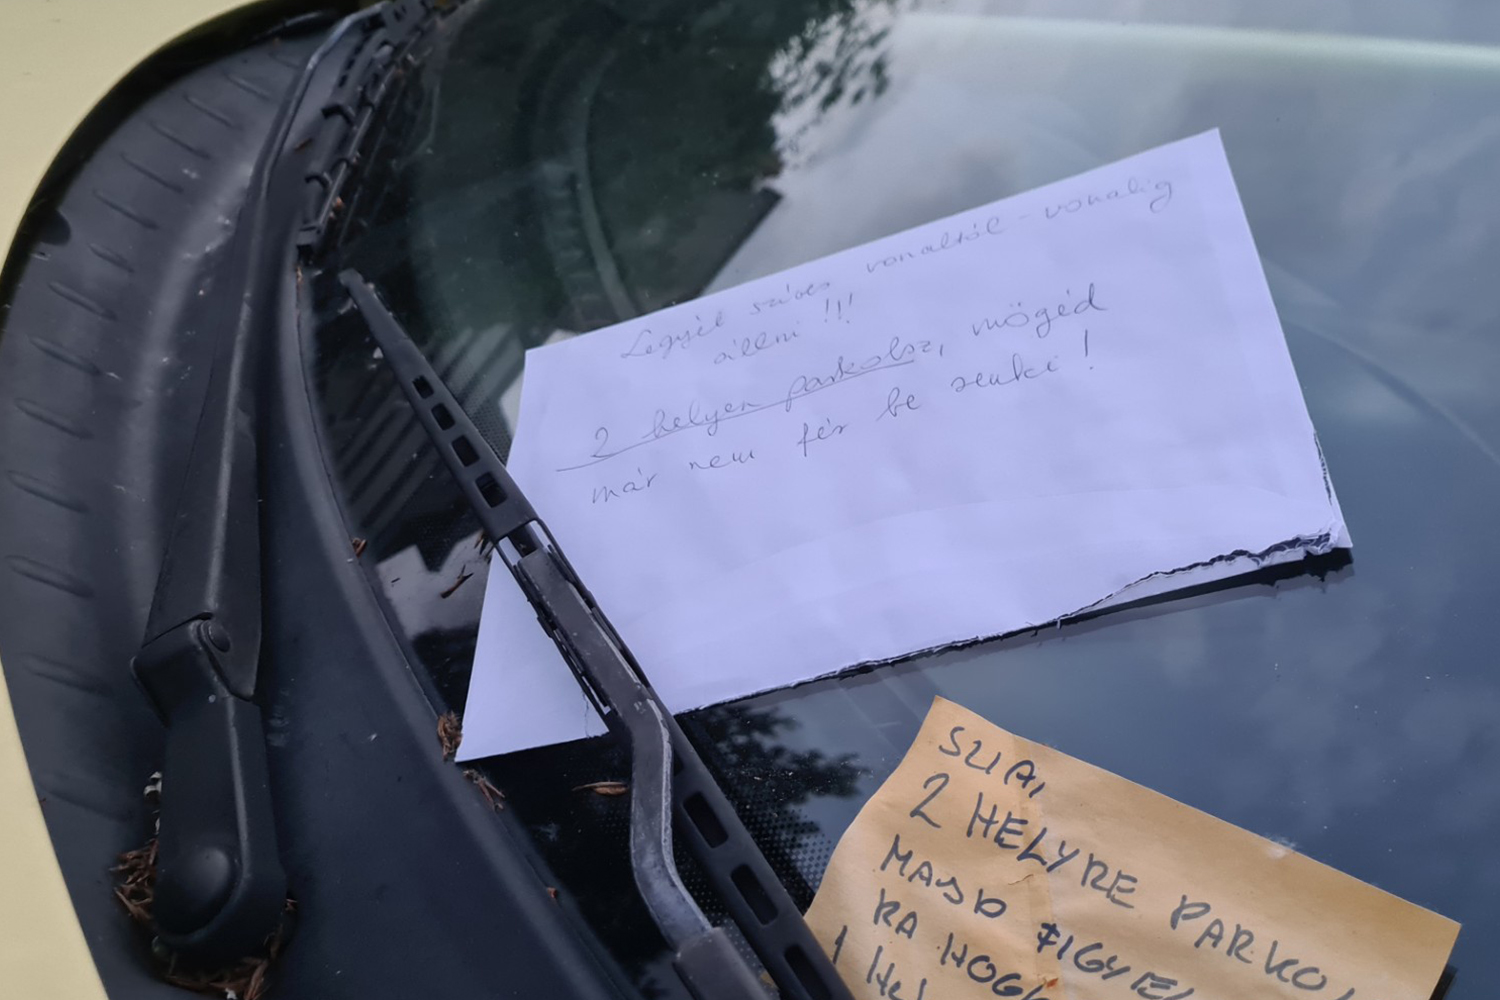 Legyél szíves vonaltól - vonalig
állni !!!
2 helyen parkolsz, mögéd
már nem fér be senki !
SZIA,
2 HELYRE PARKO
MASD FIGYEL
RA HOG
1 HEL